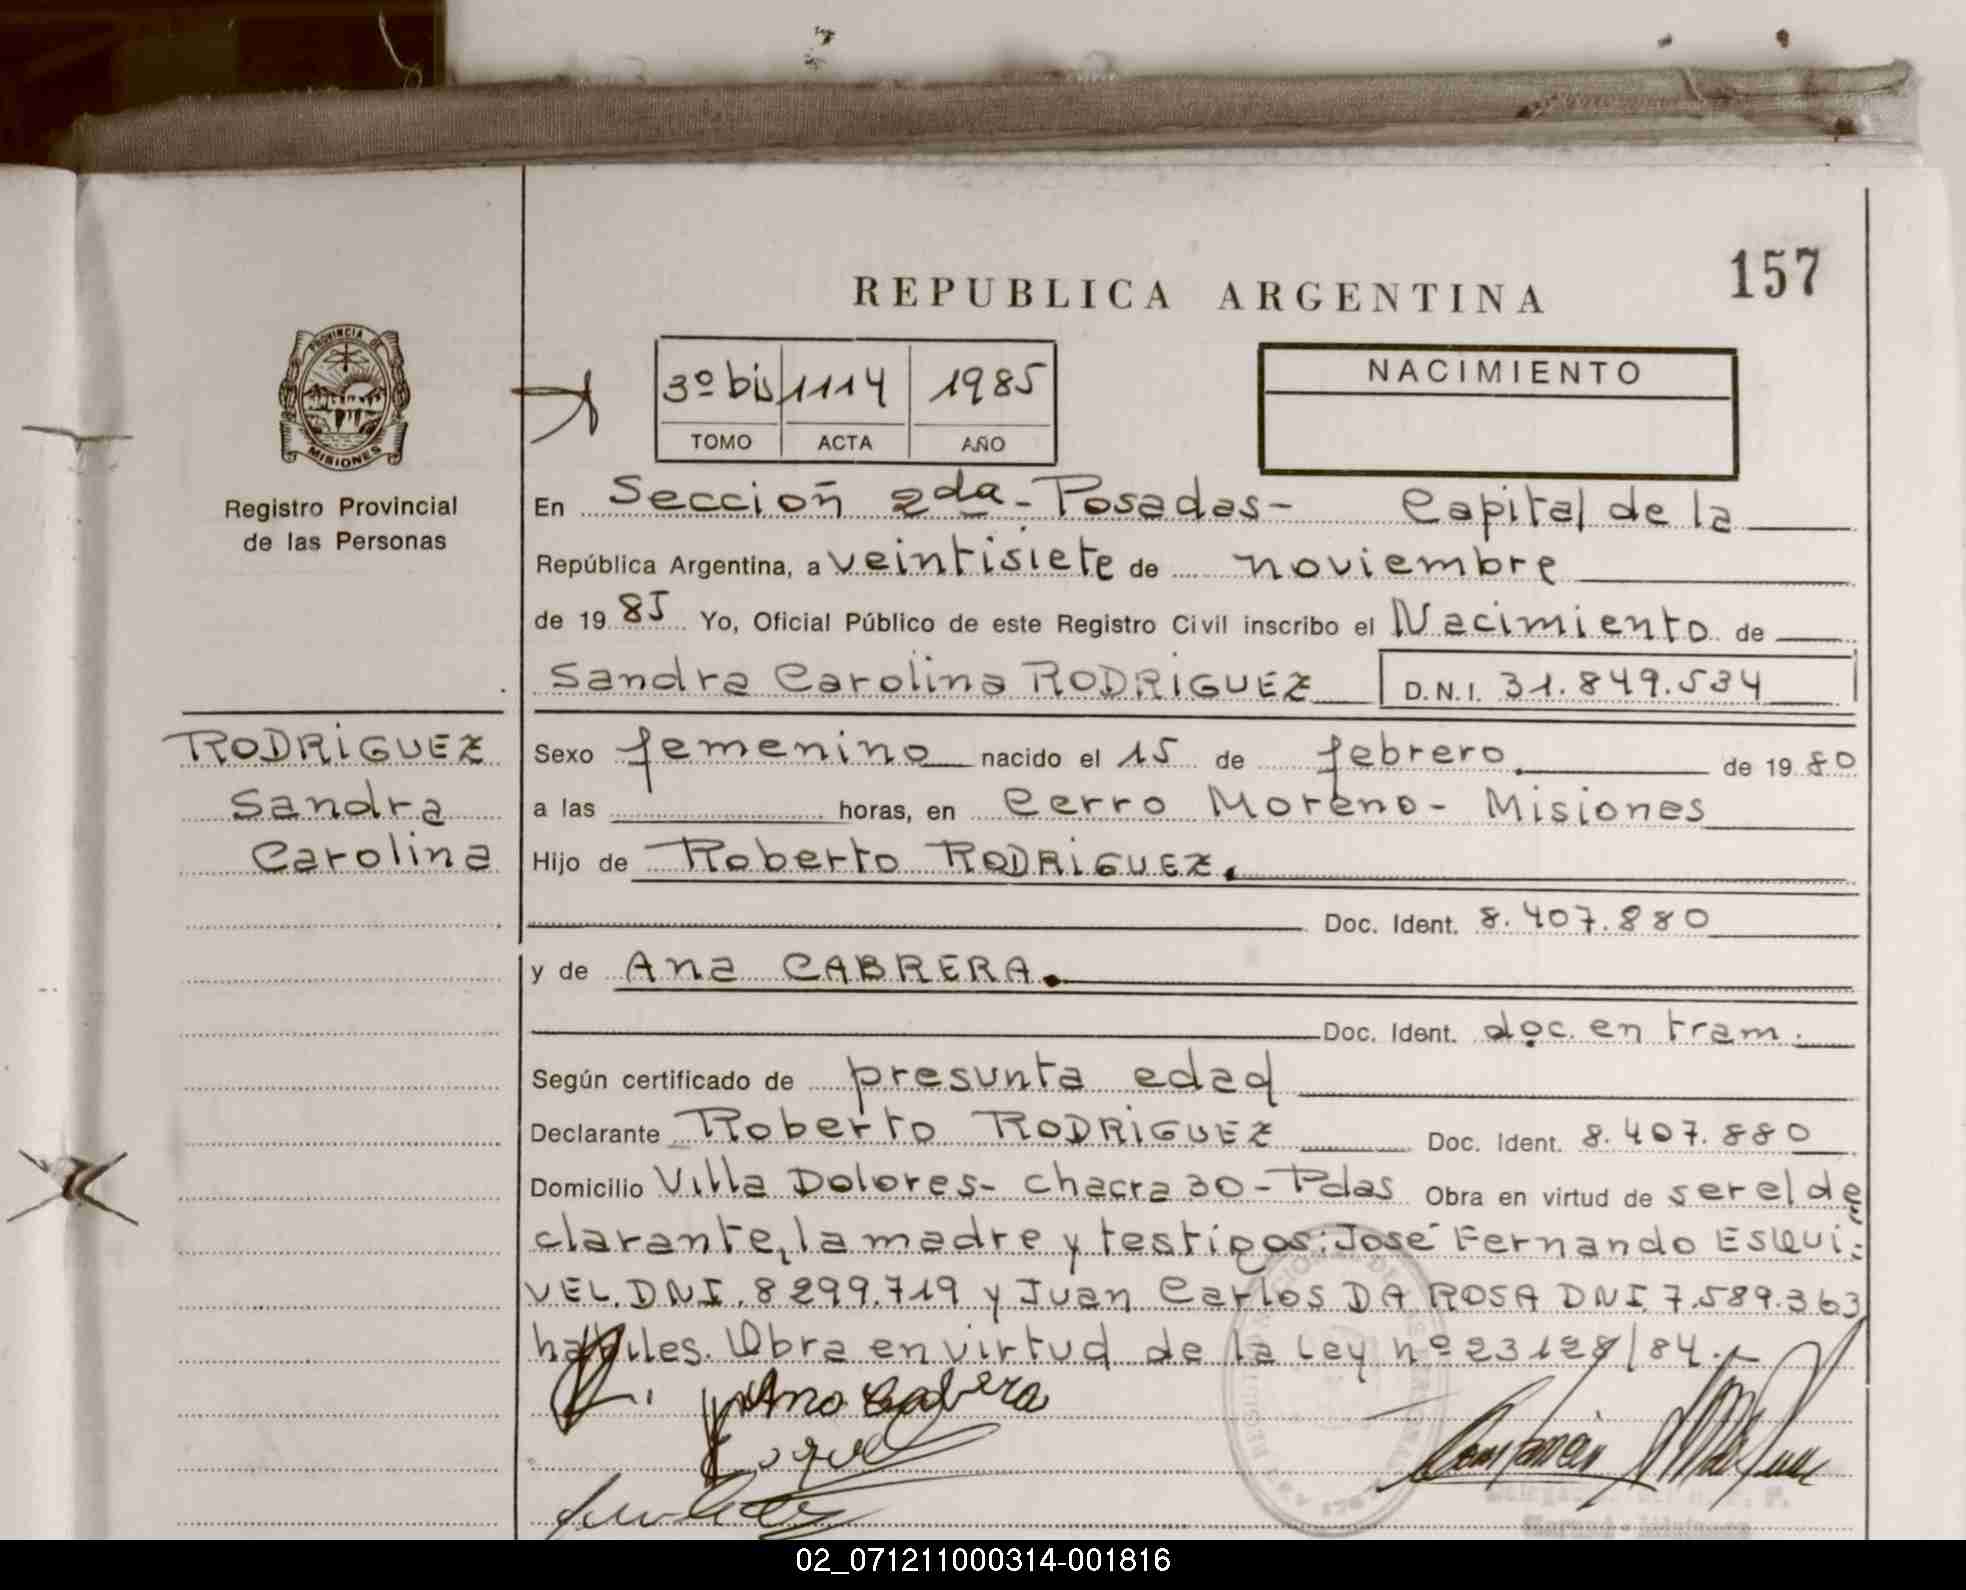 157
REPUBLICA ARGENTINA
PROVINCIA DE
MISIONES
Registro Provincial
de las Personas
3º bis 1114 1985
TOMO ACTA AÑO
NACIMIENTO
En Sección 2da - Posadas - Capital de la
República Argentina, a veintisiete de noviembre
de 19 85 Yo, Oficial Público de este Registro Civil inscribo el Nacimiento de
Sandra Carolina RODRIGUEZ D.N.I. 31.849.534
RODRIGUEZ
Sandra
Carolina
Sexo femenino nacido el 15 de febrero de 19 80
a las horas, en Cerro Moreno - Misiones
Hijo de Roberto RODRIGUEZ.
Doc. Ident. 8.407.880
y de Ana CABRERA.
Doc. Ident. doc. en tram.
Según certificado de presunta edad
Declarante Roberto RODRIGUEZ Doc. Ident. 8.407.880
Domicilio Villa Dolores - chacra 30 - Pdas Obra en virtud de ser el de
clarante, la madre y testigos: José Fernando ESQUI-
VEL. DNI. 8299.719 y Juan Carlos DA ROSA DNI 7.589.363
habiles. Obra en virtud de la Ley nº 23128/84.-
R. Ana Cabrera
02_071211000314-001816